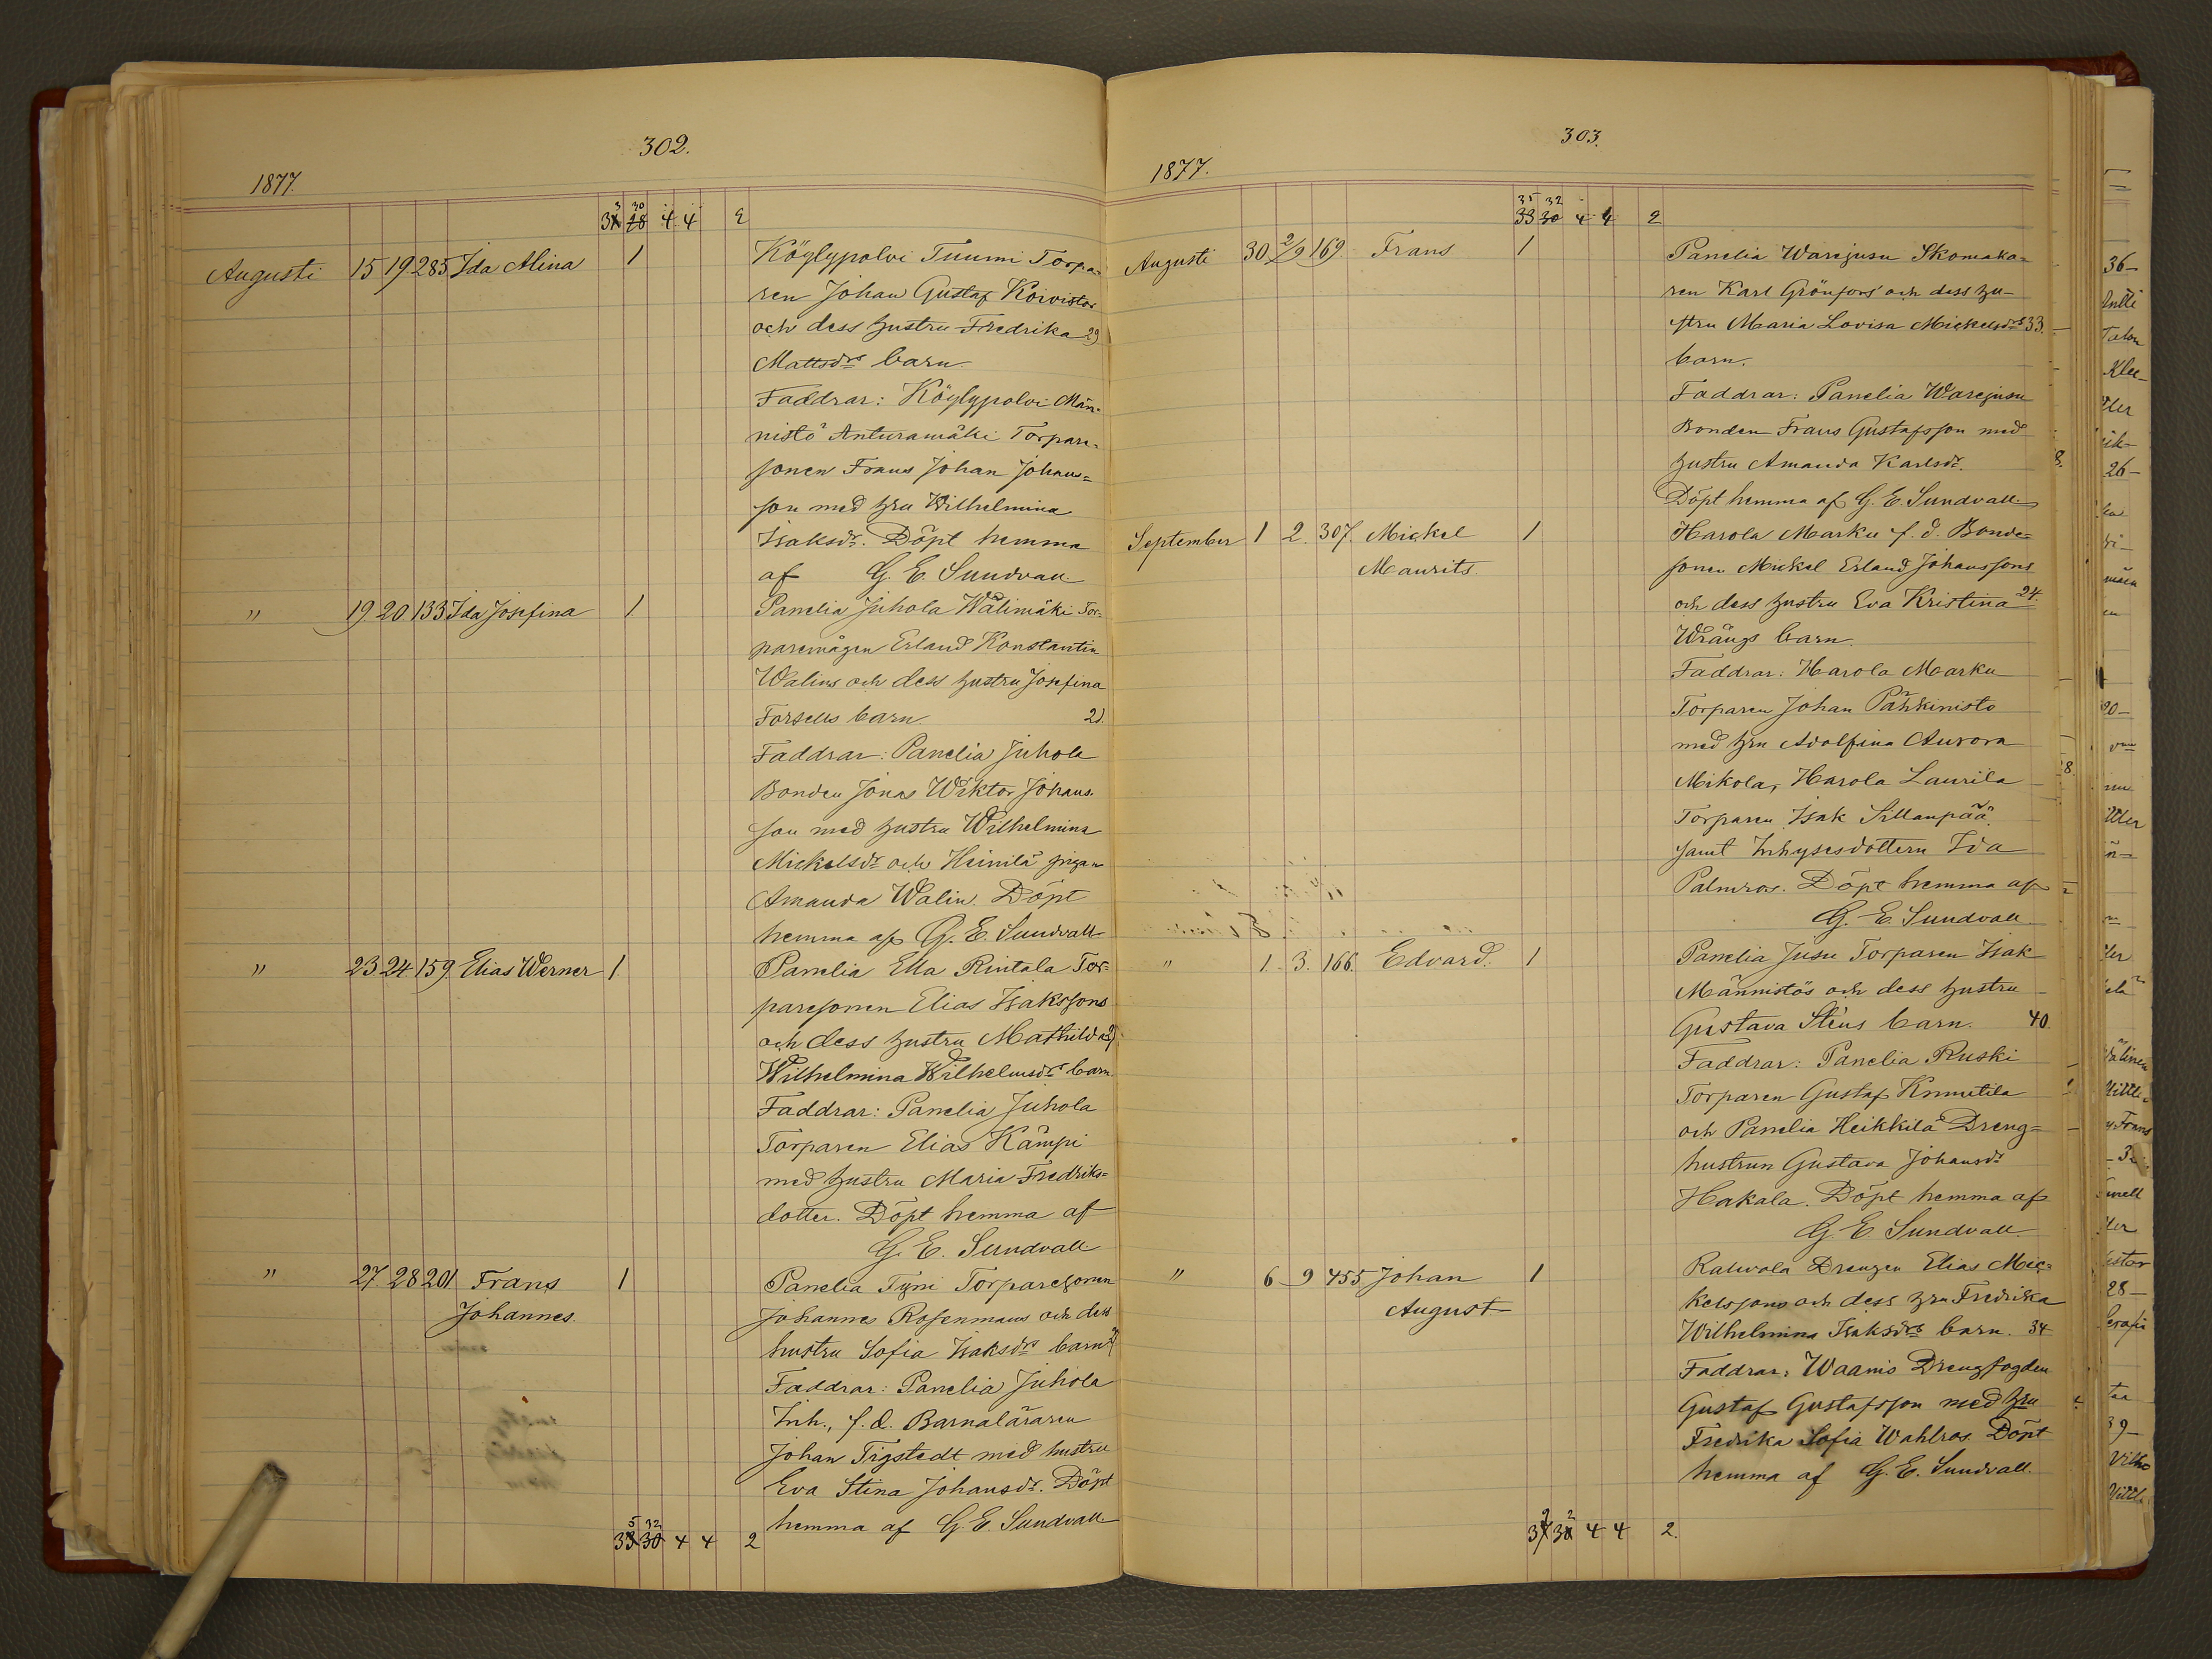 302.
1877.
3 30
31 28 4 4 2
Augusti 15 19 285 Ida Alina 1 Köylypolvi Tuumi Torpa=
ren Johan Gustaf Koivistos
och dess hustru Fredrika 29
Mattsdrs barn.
Faddrar: Köylypolvi Män-
nistö Anturamäki Torpare-
sonen Frans Johan Johans=
son med hru Wilhelmina
Isaksdr. Döpt hemma
af G. E. Sundvall.
" 19 20 133 Ida Josefina 1 Panelia Juhola Wälimäki Tor=
paremågen Erland Konstantin
Walins och dess hustru Josefina
Forsells barn.
Faddrar: Panelia Juhola
Bonden Jonas Wiktor Johans-
son med hustru Wilhelmina
Mickelsdr och Heinilä pigan
Amanda Walin. Döpt
hemma af G. E. Sundvall
" 23 24 159 Elias Werner 1 Panelia Ella Rintala Tor=
paresonen Elias Isakssons
och dess hustru Mathilda
Wilhelmina Wilhelmsdrs barn.
Faddrar: Panelia Juhola
Torparen Elias Kämpi
med hustru Maria Fredriks=
dotter. Döpt hemma af
G. E. Sundvall.
" 27 28 201 Frans 1 Panelia Tyni Torparesonen
Johannes. Johannes Rosenmans och dess
hustru Sofia Isaksdrs barn
Faddrar: Panelia Juhola
Inh., f. d. Barnaläraren
Johan Tigstedt med hustru
Eva Stina Johansdr. Döpt
hemma af G. E. Sundvall
5 32
33 30 4 4 2
303.
1877.
35 32
33 30 4 4 2
Augusti 30 2/9 169 Frans 1 Panelia Warejusu Skomaka=
ren Karl Grönfors' och dess hu-
stru Maria Lovisa Mickelsdrs 33.
barn.
Faddrar: Panelia Warejusu
Bonden Frans Gustafsson med
hustru Amanda Karlsdr.
Döpt hemma af G. E. Sundvall.
September 1 2. 307. Mickel 1 Harola Marku f. d. Bonde=
Maurits. sonen Mickel Erland Johanssons
och dess hustru Eva Kristina 24.
Wrängs barn.
Faddrar: Harola Marku
Torparen Johan Pähkinistö
med hru Adolfina Aurora
Mikola, Harola Laurila
Torparen Isak Sillanpää
samt Inhysesdottern Ida
Palmros. Döpt hemma af
G. E. Sundvall.
" 1. 3. 166. Edvard. 1 Panelia Jusu Torparen Isak
Männistös och dess hustru
Gustava Stens barn. 40.
Faddrar: Panelia Ruski
Torparen Gustaf Knuutila
och Panelia Heikkilä Dreng=
hustrun Gustava Johansdr
Hakala. Döpt hemma af
G. E. Sundvall.
" 6 9 455 Johan 1 Ratvala Drengen Elias Mic=
August kelssons och dess hru Fredrika
Wilhelmina Isaksdrs barn. 34
Faddrar: Waanis Drengfogden
Gustaf Gustafsson med hru
Fredrika Sofia Wahlros. Döpt
hemma af G. E. Sundvall.
4 4 2.